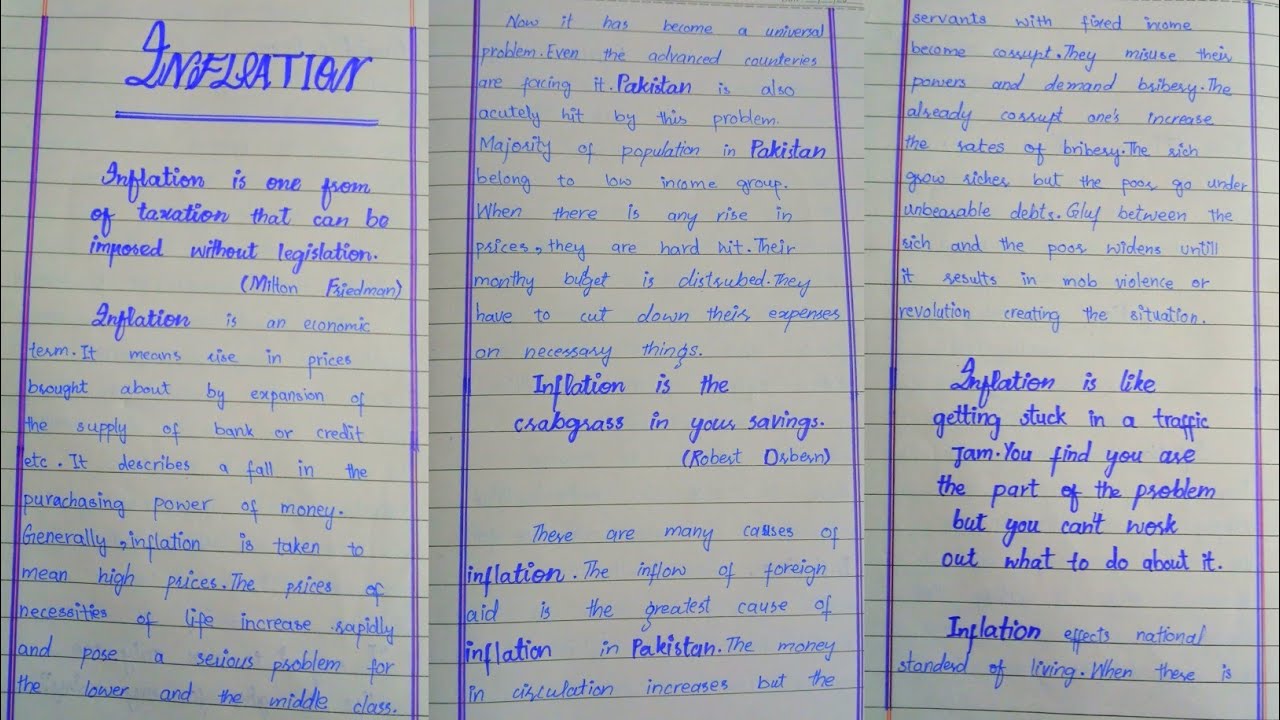 INFLATION
Inflation is one from
of taxation that can be
imposed without legislation.
(Milton Friedman)
Inflation is an economic
term. It means rise in prices
brought about by expansion of
the supply of bank or credit
etc. It describes a fall in the
purachasing power of money.
Generally, inflation is taken to
mean high prices. The prices of
necessities of life increase rapidly
and pose a serious problem for
the lower and the middle class.
Now it has become a universal
problem. Even the advanced counteries
are facing it. Pakistan is also
acutely hit by this problem.
Majority of population in Pakistan
belong to low income group.
When there is any rise in
prices, they are hard hit. Their
monthy buget is distrubed. They
have to cut down their expenses
on necessary things.
Inflation is the
crabgrass in your savings.
(Robert Orbern)
There are many causes of
inflation. The inflow of foreign
aid is the greatest cause of
inflation in Pakistan. The money
in circulation increases but the
servants with fixed income
become corrupt. They misuse their
powers and demand bribery. The
already corrupt one's increase
the rates of bribery. The rich
grow richer but the poor go under
unbearable debts. Gluf between the
rich and the poor widens untill
it results in mob violence or
revolution creating the situation.
Inflation is like
getting stuck in a traffic
Jam. You find you are
the part of the problem
but you can't work
out what to do about it.
Inflation effects national
standerd of living. When there is